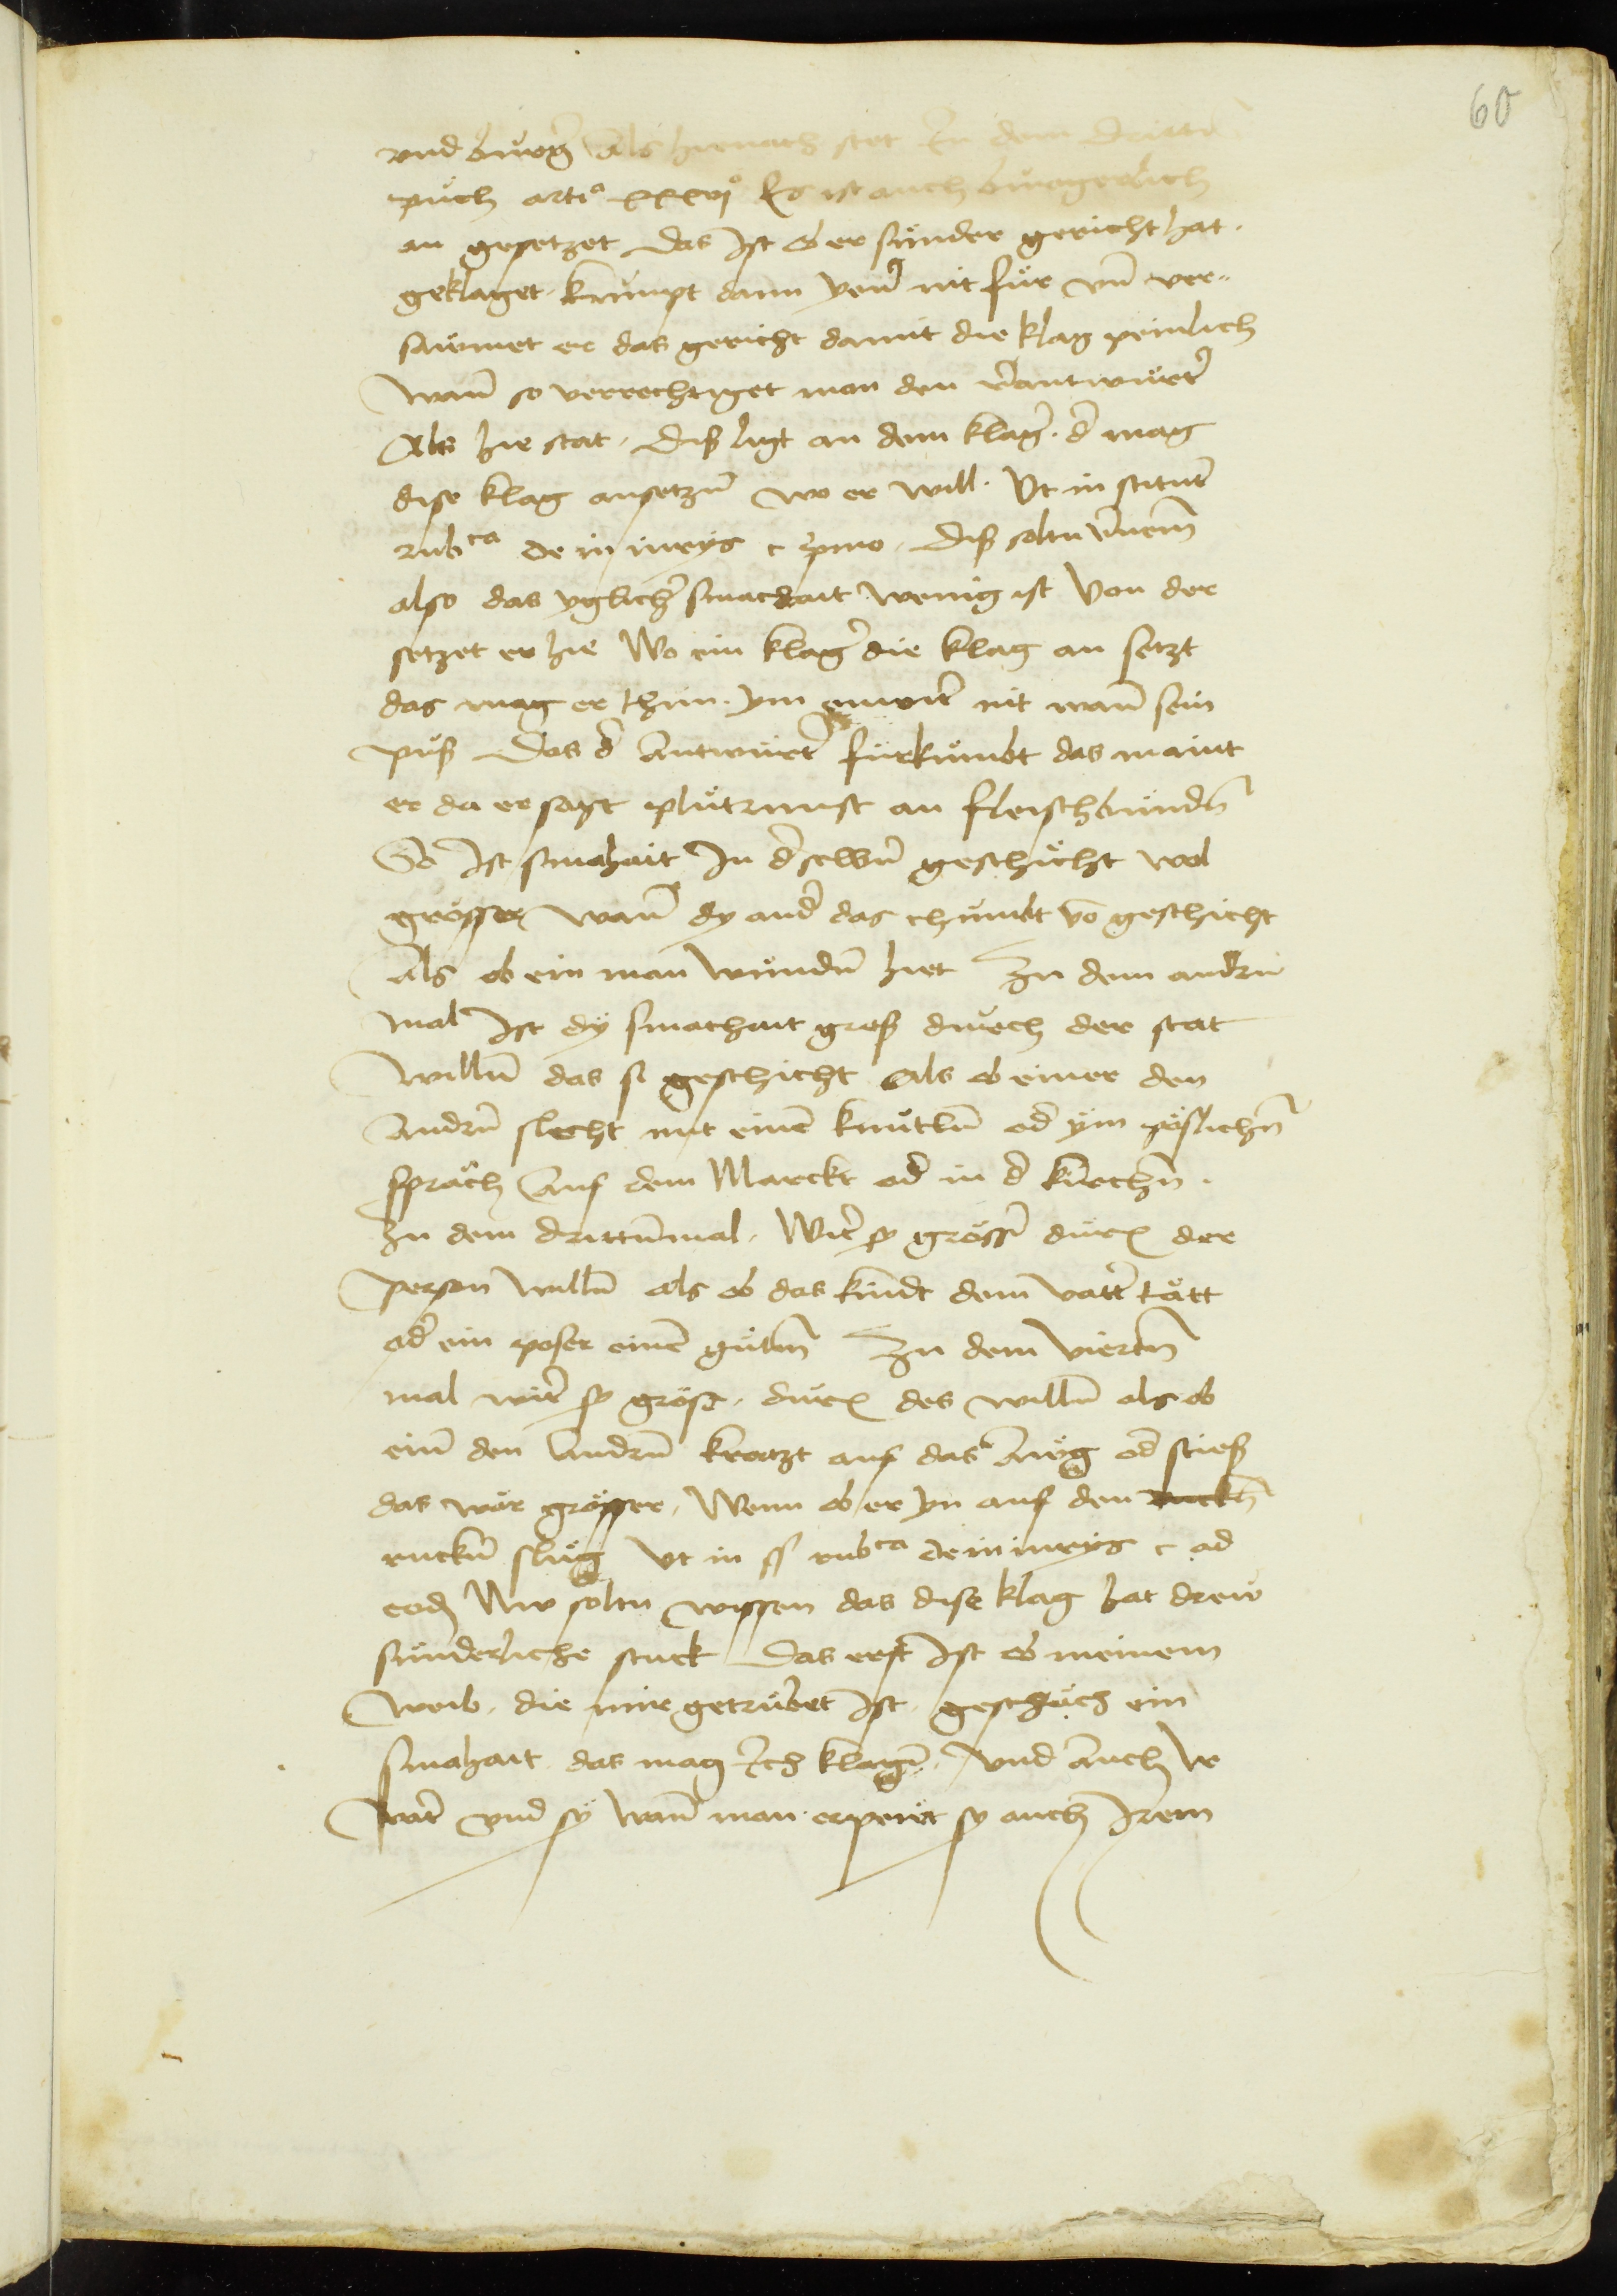 60
vnd burg̃ Als hernach stet In dem dritt̃
puch artiᵒ xxxviᵒ Es ist auch burgerlich
an gesetzet das ist ob er sunder gericht hat ·
geklaget · kumpt dann yen̄ nit fur vn̄ ver-
saumet er das gericht damit die klag peinlich
wan̄ so verrechtiget man den v̄antwurt̃
Als hie stat · Diß ligt an dem klag̃ · d̃ mag
dise klag ansetzn̄ wo er will · Vt in stitut̃
rubᶜᵃ de in iurys c p̃mo · Diß soltu v̄nem̄
also das yglich̃ smachait wenig ist Von der
setzet er hie Wo ein klag̃ die klag an setzt
das mag er thun · ym nit wan̄ sein
puß Das d̃ Antwurt̃ furkumbt das maint
er da er sagt plutrunst an fleischwundn̄
So ist smahait In d̃selbn̄ geschicht wol
grösser wan̄ dy and̃ das chumbt vō geschicht
Als ob ein man wundn̄ hiet Zu dem andrn̄
mal Ist dy smachait groß durch der stat
willn̄ das si geschicht Als ob einer den
Andrn̄ slecht mit einē knutln̄ od̃ ym pöslichn̄
sprach Auf dem Marckt od̃ in d̃ kirchn̄ ·
Zu dem drittn̄mal · Wirt sy gröss̃ durch der
person willn̄ als ob das kindt dem vatt̃ tätt
od̃ ein poser einē gutn̄ Zu dem viertn̄
mal wirt sy gröss̃ · durch des willn̄ als ob
ein̄ den Andrn̄ kratzt auf das Aug od̃ stieß
das wär grösser · Wenn ob er yn auf den
ruckn̄ slug Vt in ff rubᶜᵃ de in iurys c ad
eod̄ Nw soltu wissen das dise klag hat drew
sunderliche stuck Das erst Ist ob meinem
Weib · die mir getrubet Ist · geschäch ein
smahait das mag Ich klagn̄ · Vnd Auch Ir
Vat̃ vnd sy wan̄ man erpeut sy auch Irem